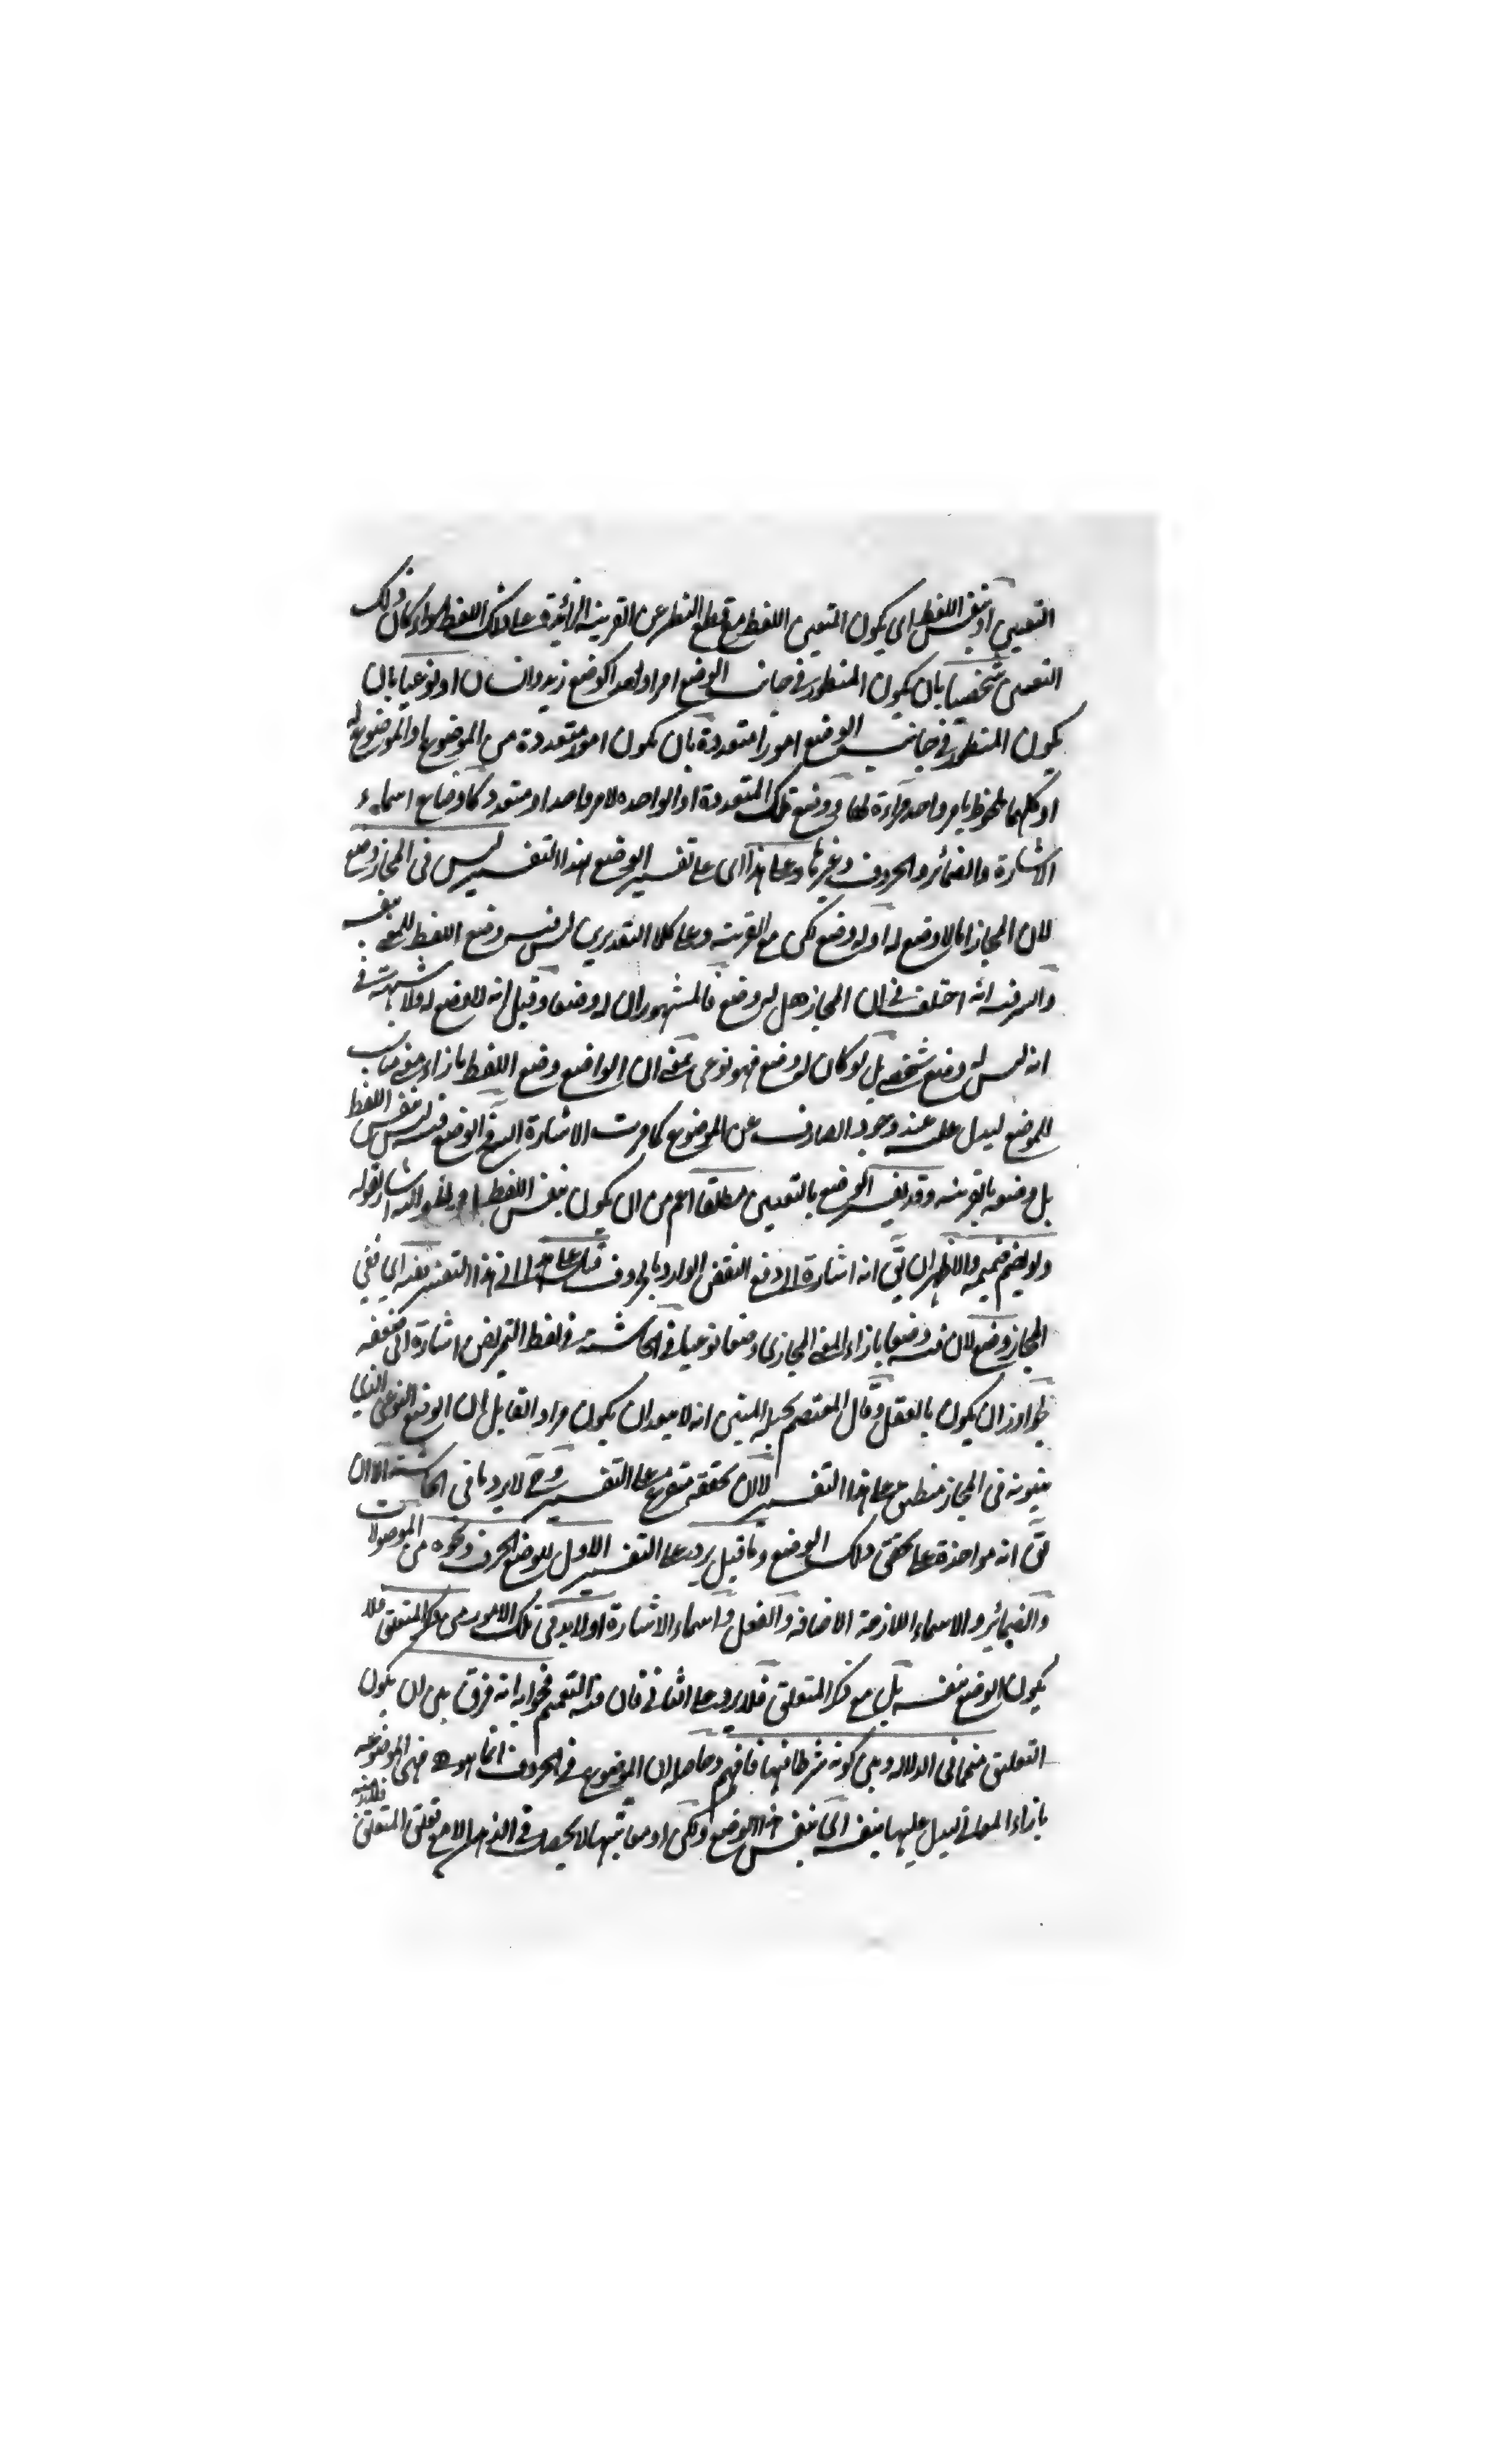 التعيين او بنفس اللفظ اى يكون التعيين اللفظ مع قطع النظر عن القرينة الزائدة على ذلك اللفظ سواء كان ذلك
التعيين شخصيا بان يكون المنظور فى جانب الوضع امرا واحدا كوضع زيد وانسان او نوعيا بان
يكون المنظور فى جانب الوضع امورا متعددة بان يكون امور متعددة من الموضوع او الموضوع له
او كليهما ملحوظ بامر واحد مرآة لها فى وضع تلك المتعددة او الواحدة لامر واحد او متعدد كاوضاع اسماء
الاشارة والضمائر والحروف وغيرها وعلى هذا اى على تفسير الوضع بهذا التفسير ليس فى المجاز وضع
لان المجاز اما لا وضع له او له وضع لكن مع القرينة وعلى كلا التقديرين ليس فيه وضع اللفظ للمعنى بنفسه
والسر فيه انه اختلف فى ان المجاز هل له وضع فالمشهور ان له وضعا وقيل انه لا وضع له ولا شبهة فى
انه ليس له وضع شخصى بل لو كان له وضع فهو نوعى بمعنى ان الواضع وضع اللفظ بازاء معنى مناسب
للموضع ليدل عليه عند وجود الصارف عن الموضوع كما مرت الاشارة اليه فالوضع فيه ليس بنفس اللفظ
بل وضعه بالقرينة وقد يفسر الوضع بالتعيين مطلقا اعم من ان يكون بنفس اللفظ اشار بقوله
ولو بضم ضميمة والاظهر ان يق انه اشارة الى دفع النقض الوارد بالحروف على هذا التفسير ففيه اى ففى
المجاز وضع لان فيه وضعا بازاء المعنى المجازى وضعا نوعيا فى الحاشية فى لفظ التمريض اشارة الى ضعفه
جواز ان يكون بالعقل وقال المعتصم بحبله المتين انه لا يبعد ان يكون مراد القايل ان الوضع النوعى الذى
يثبتونه فى المجاز منطبق على هذا التفسير لا ان تحققه متفرع على التفسير وح لا يرد ما فى الحاشية الا ان
يق انه مواخذة على تحقق ذلك الوضع وما قيل يرد على التفسير الاول للوضع الحرف ونحوه من الموصولات
والضمائر والاسماء اللازمة الاضافة والفعل واسماء الاشارة اذ لا بد فى تلك الامور من ذكر المتعلق فلا
يكون الوضع بنفسه بل مع ذكر المتعلق فلا يرد على الثانى فان فيه التعميم فجوابه انه فرق بين ان يكون
التعلق متمما فى الدلالة وبين كونه شرطا فيها فافهم وحاصله ان الموضوع فى الحروف انما هو فهى الموضوعة
بازاء المعانى ليدل عليها بنفسه اى بنفس هذا الوضع ولكن معانيها لا يحصل فى الذهن الا مع تعلق المتعلق